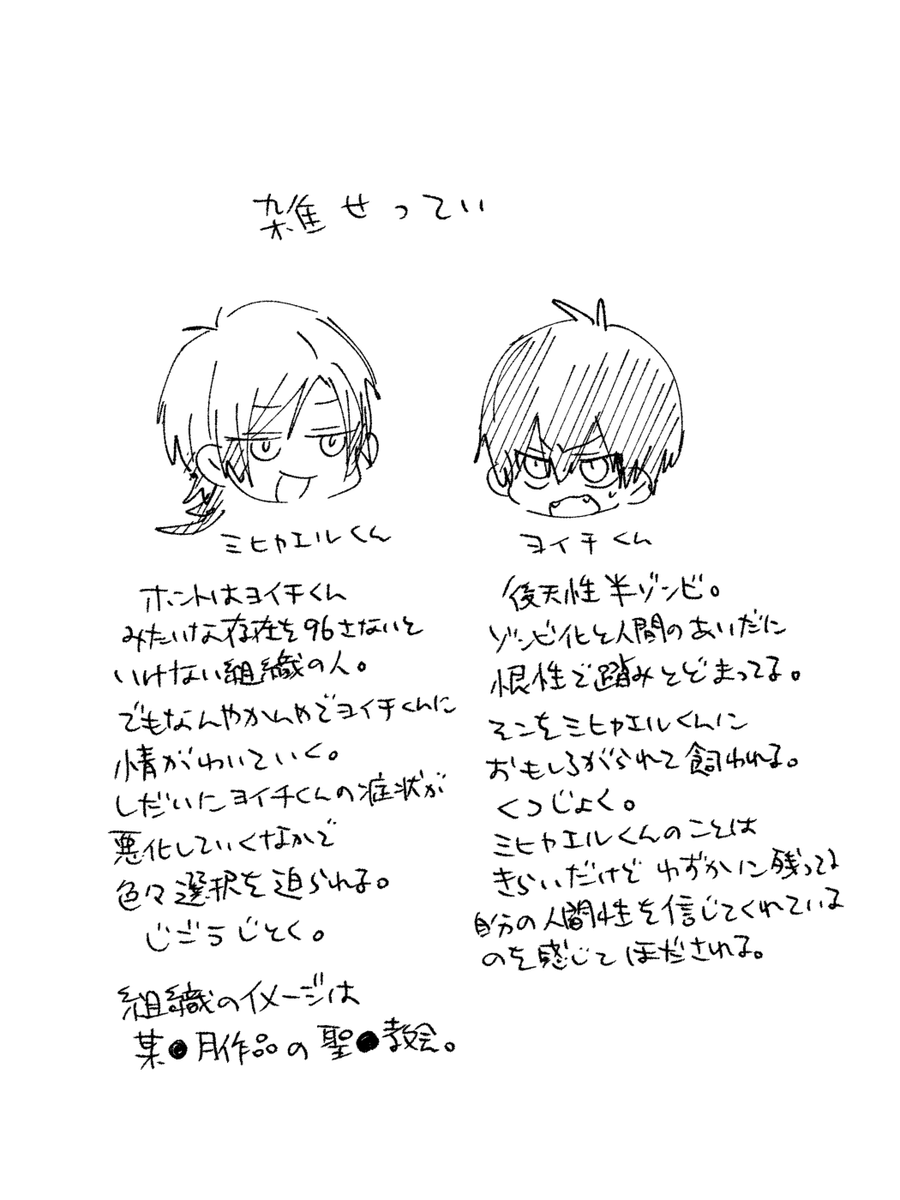 雑せってい
ミヒャエルくん
ホントはヨイチくん
みたいな存在を96さないと
いけない組織の人。
でもなんやかんやでヨイチくんに
情がわいていく。
しだいにヨイチくんの症状が
悪化していくなかで
色々選択を迫られる。
じごうじとく。
組織のイメージは
某●月作品の聖●教会。
ヨイチくん
後天性半ゾンビ。
ゾンビ化と人間のあいだに
根性で踏みとどまってる。
そこをミヒャエルくんに
おもしろがられて飼われる。
くつじょく。
ミヒャエルくんのことは
きらいだけどわずかに残ってる
自分の人間性を信じてくれている
のを感じてほだされる。